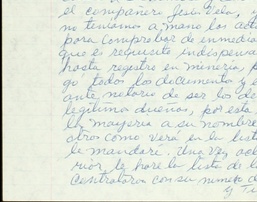 el compañero Jesu Tela, y
no teniamos a mano los acti
para comprobar de enmedia
que es requisito indispensa
hasta registre en mineria, p
gó todos los documento y e
ante notario de ser los do
legitimo dueños, por esta
la mayeria a su nombre
otros como verá en la lista
le mandaré. Una vez acla
rior, le hare la lista de l
Centraloria con su numero d
y Ti